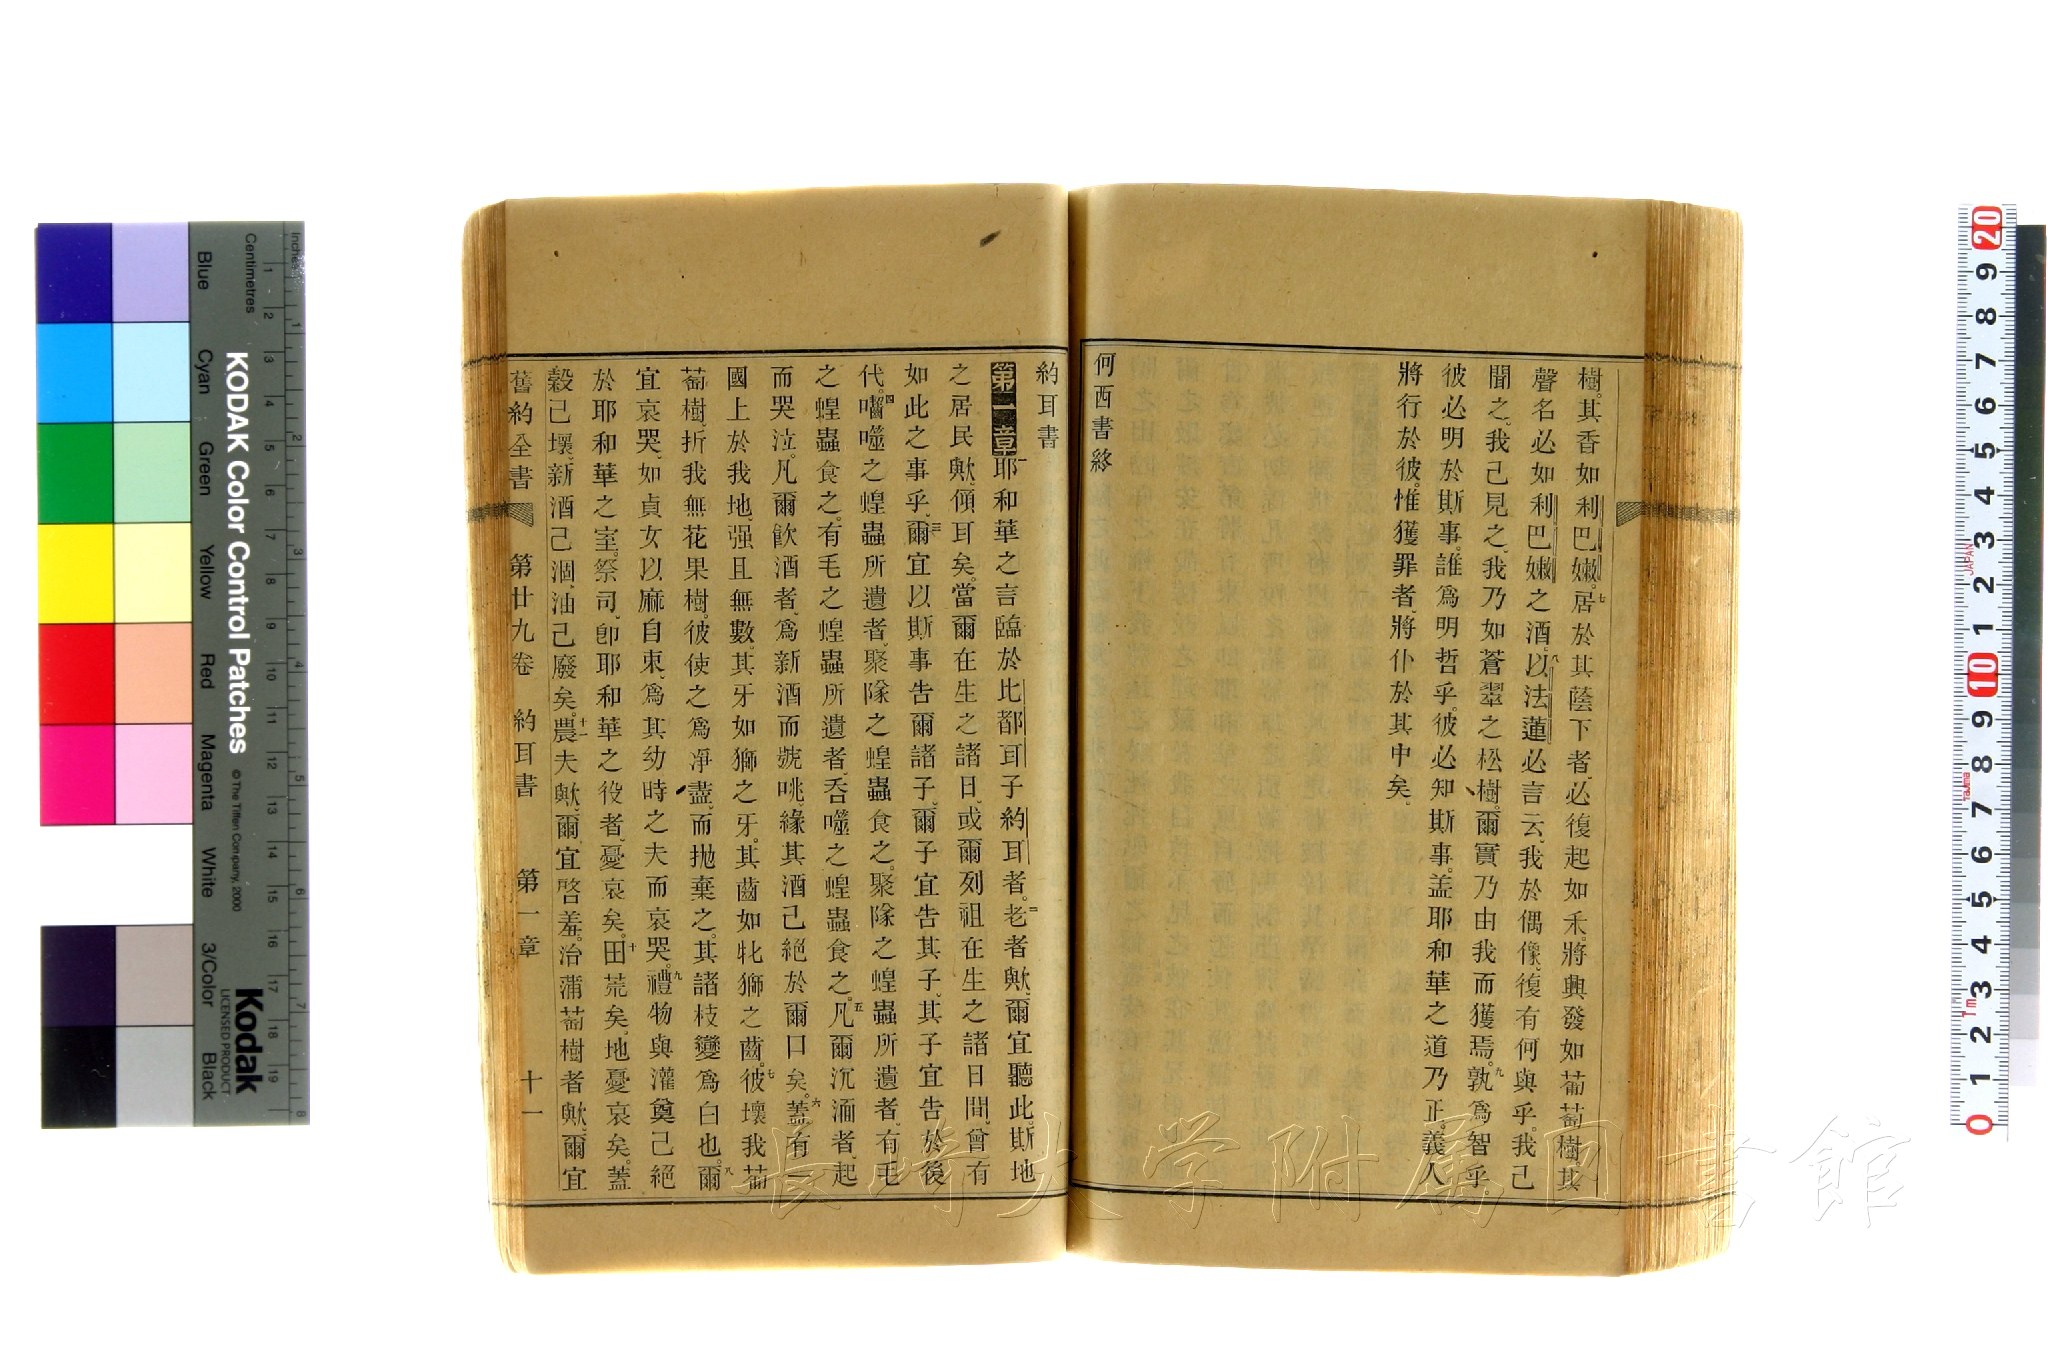 樹。其香如利巴嫩。七居於其蔭下者、必復起如禾。將興發如葡萄樹。其
聲名必如利巴嫩之酒。八以法蓮必言云、我於偶像、復有何與乎。我己
聞之。我己見之、我乃如蒼翠之松樹。爾實乃由我而獲焉。九孰爲智乎。
彼必明於斯事。誰爲明哲乎。彼必知斯事。盖耶和華之道乃正。義人
將行於彼。惟獲罪者、將仆於其中矣。
何西書終
約耳書
第一章一耶和華之言臨於比都耳子約耳者。二老者歟、爾宜聽此、斯地
之居民歟、傾耳矣。當爾在生之諸日、或爾列祖在生之諸日間、曾有
如此之事乎。三爾宜以斯事告爾諸子、爾子宜告其子、其子宜告於後
代。四囓噬之蝗蟲所遺者、聚隊之蝗蟲食之。聚隊之蝗蟲所遺者、有毛
之蝗蟲食之。有毛之蝗蟲所遺者、吞噬之蝗蟲食之。五凡爾沉湎者、起
而哭泣。凡爾飲酒者、爲新酒而號咷、緣其酒己絕於爾口矣。六蓋有一
國上於我地、强且無數、其牙如獅之牙。其齒如牝獅之齒。七彼壞我葡
萄樹、折我無花果樹。彼使之爲淨盡、而抛棄之。其諸枝變爲白也。八爾
宜哀哭、如貞女以麻自束、爲其幼時之夫而哀哭。九禮物與灌奠己絕
於耶和華之室。祭司、卽耶和華之役者、憂哀矣。十田荒矣、地憂哀矣。蓋
穀己壞、新酒己涸、油己廢矣。十一農夫歟、爾宜啓羞。治葡萄樹者歟、爾宜
舊約全書 第廿九卷 約耳書 第一章 十一
Inches
Centimetres
KODAK Color Control Patches
© The Tiffen Company, 2000
Kodak
LICENSED PRODUCT
Blue Cyan Green Yellow Red Magenta White 3/Color Black
長崎大学附属図書館
20 9 8 7 6 5 4 3 2 1 10 9 8 7 6 5 4 3 2 1 0
JAPAN
Tajima
1m